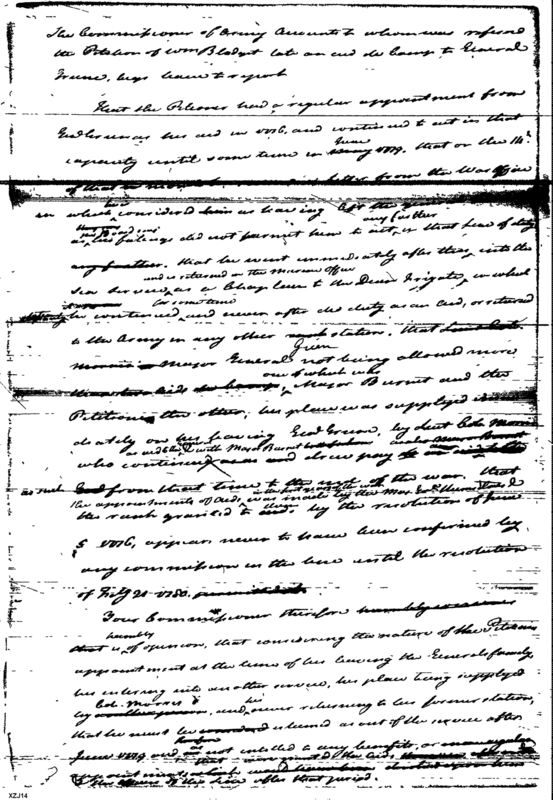 The Commissioner of Army Accounts to whom was referred
the Petition of Wm Blodget late an aid de Camp to General
Greene, begs leave to report
That the Petitioner had a regular appointment from
Genl Greene as his aid in 1776, and continued to act in that
June
capacity until some time in 1779. that on the 14th
of that letter from the War Office
in which considered him as having left the
any further
as, his feelings did not permit him to act, in that line of duty
any further. that he went immediately after this, into the
and is returned on the Marine office
Sea Service, as a Chaplain to the Deane frigate, in which
for some time
he continued, and never after did duty as an Aid, or returned
to the Army in any other station. that
Major General Green not being allowed more
one of which was
than two Aids de Camp, Major Burnet and the
Petitioner the other; his place was supplyed
diately on his leaving Genl Greene, by Lieut Col. Morris
who continued and drew pay
as such from that time to the of the war. that
the appointments of Aids, was made by the Maj. Genls themselves
the rank granted to by the resolution of June
5 1776, appears never to have been confirmed by
any commission in the line until the resolution
of Feby 21 1780.
Your Commissioner therefore
humbly
that is of opinion, that considering the nature of the Petitioners
appointment at the time of his leaving the Generals family
his entering into another service, his place being supplyed
Col. Morris
by and his never returning to his former station,
that he must be esteemed as out of the service after
June 1779 and not entitled to any benefits,
that were granted the aids
of the line after that period.
XZJ14